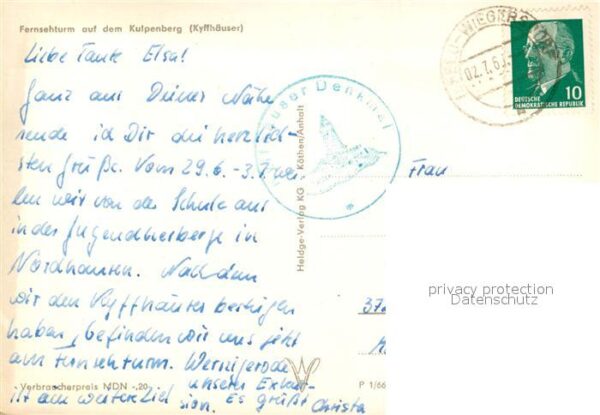 Fernsehturm auf dem Kulpenberg (Kyffhäuser)
Liebe Tante Elsa!
Ganz aus Deiner Nähe
sende ich Dir die herzlich-
sten Grüße. Vom 29.6. - 3.7. wei-
len wir von der Schule aus
in der Jugendherberge in
Nordhausen. Nachdem
wir den Kyffhäuser bestiegen
haben, befinden wir uns jetzt
am Fernsehturm. Wernigerode
ist ein weiteres Ziel unserer Exkur-
sion. Es grüßt Christa
Verbraucherpreis MDN -,20
Heldge-Verlag KG · Köthen/Anhalt
P 1/66
Denkmal
02.7.6
DEUTSCHE
DEMOKRATISCHE REPUBLIK
10
Frau
37
privacy protection
Datenschutz